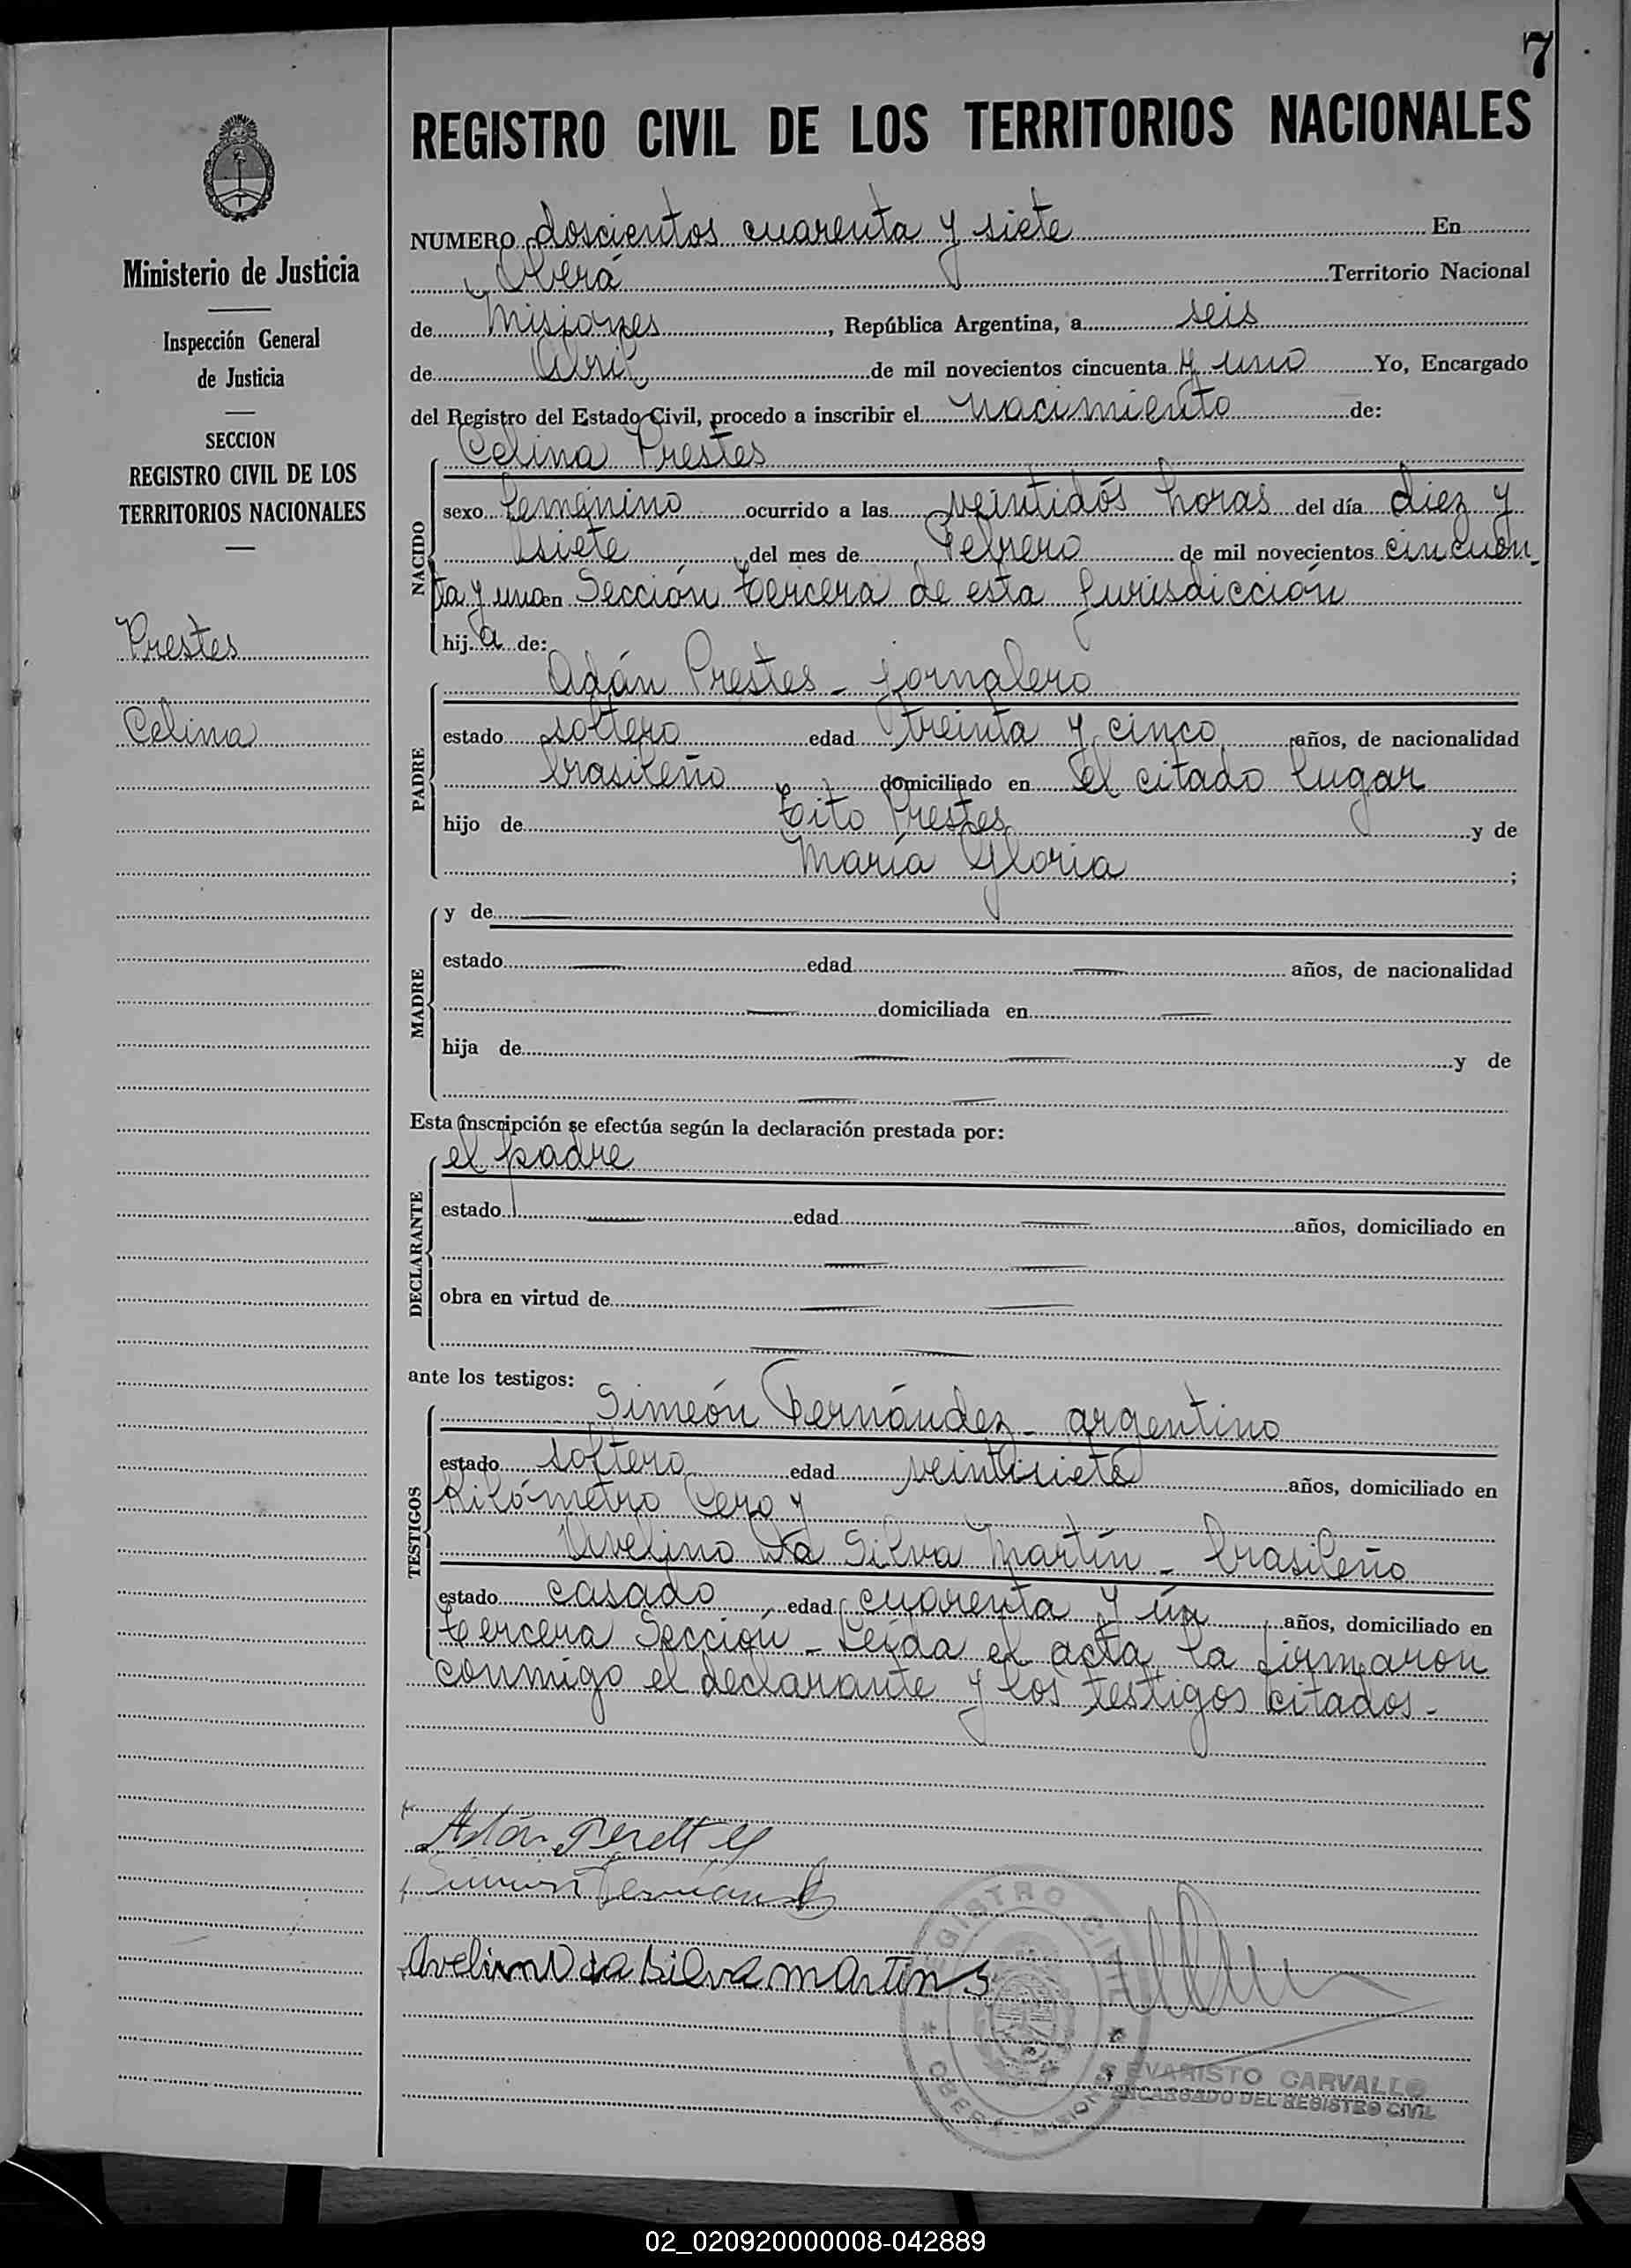 7
REGISTRO CIVIL DE LOS TERRITORIOS NACIONALES
Ministerio de Justicia
Inspección General
de Justicia
SECCION
REGISTRO CIVIL DE LOS
TERRITORIOS NACIONALES
Prestes
Celina
NUMERO doscientos cuarenta y siete En
Oberá Territorio Nacional
de Misiones, República Argentina, a seis
de Abril de mil novecientos cincuenta y uno Yo, Encargado
del Registro del Estado Civil, procedo a inscribir el nacimiento de:
NACIDO
Celina Prestes
sexo femenino ocurrido a las veintidós horas del día diez y
siete del mes de Febrero de mil novecientos cincuen
ta y uno en Sección tercera de esta Jurisdicción
hija de:
PADRE
Adán Prestes - jornalero
estado soltero edad treinta y cinco años, de nacionalidad
brasileño domiciliado en el citado lugar
hijo de Tito Prestes y de
María Gloria ;
MADRE
y de
estado edad años, de nacionalidad
domiciliada en
hija de y de
Esta inscripción se efectúa según la declaración prestada por:
DECLARANTE
el padre
estado edad años, domiciliado en
obra en virtud de
ante los testigos:
TESTIGOS
Simeón Fernández - argentino
estado soltero edad veintisiete años, domiciliado en
Kilómetro Cero y
Avelino Da Silva Martín - brasileño
estado casado edad cuarenta y ún años, domiciliado en
tercera Sección - Leída el acta, la firmaron
conmigo el declarante y los testigos citados -
Avelino da Silva Martins
REGISTRO CIVIL
OBERÁ - MISIONES
EVARISTO CARVALLO
ENCARGADO DEL REGISTRO CIVIL
02_020920000008-042889